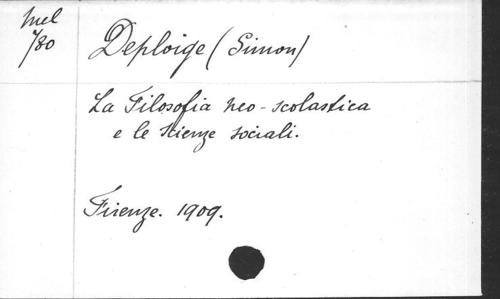 Mel
/80
Deploige (Simon)
La Filosofia neo-scolastica
e le scienze sociali.
Firenze. 1909.